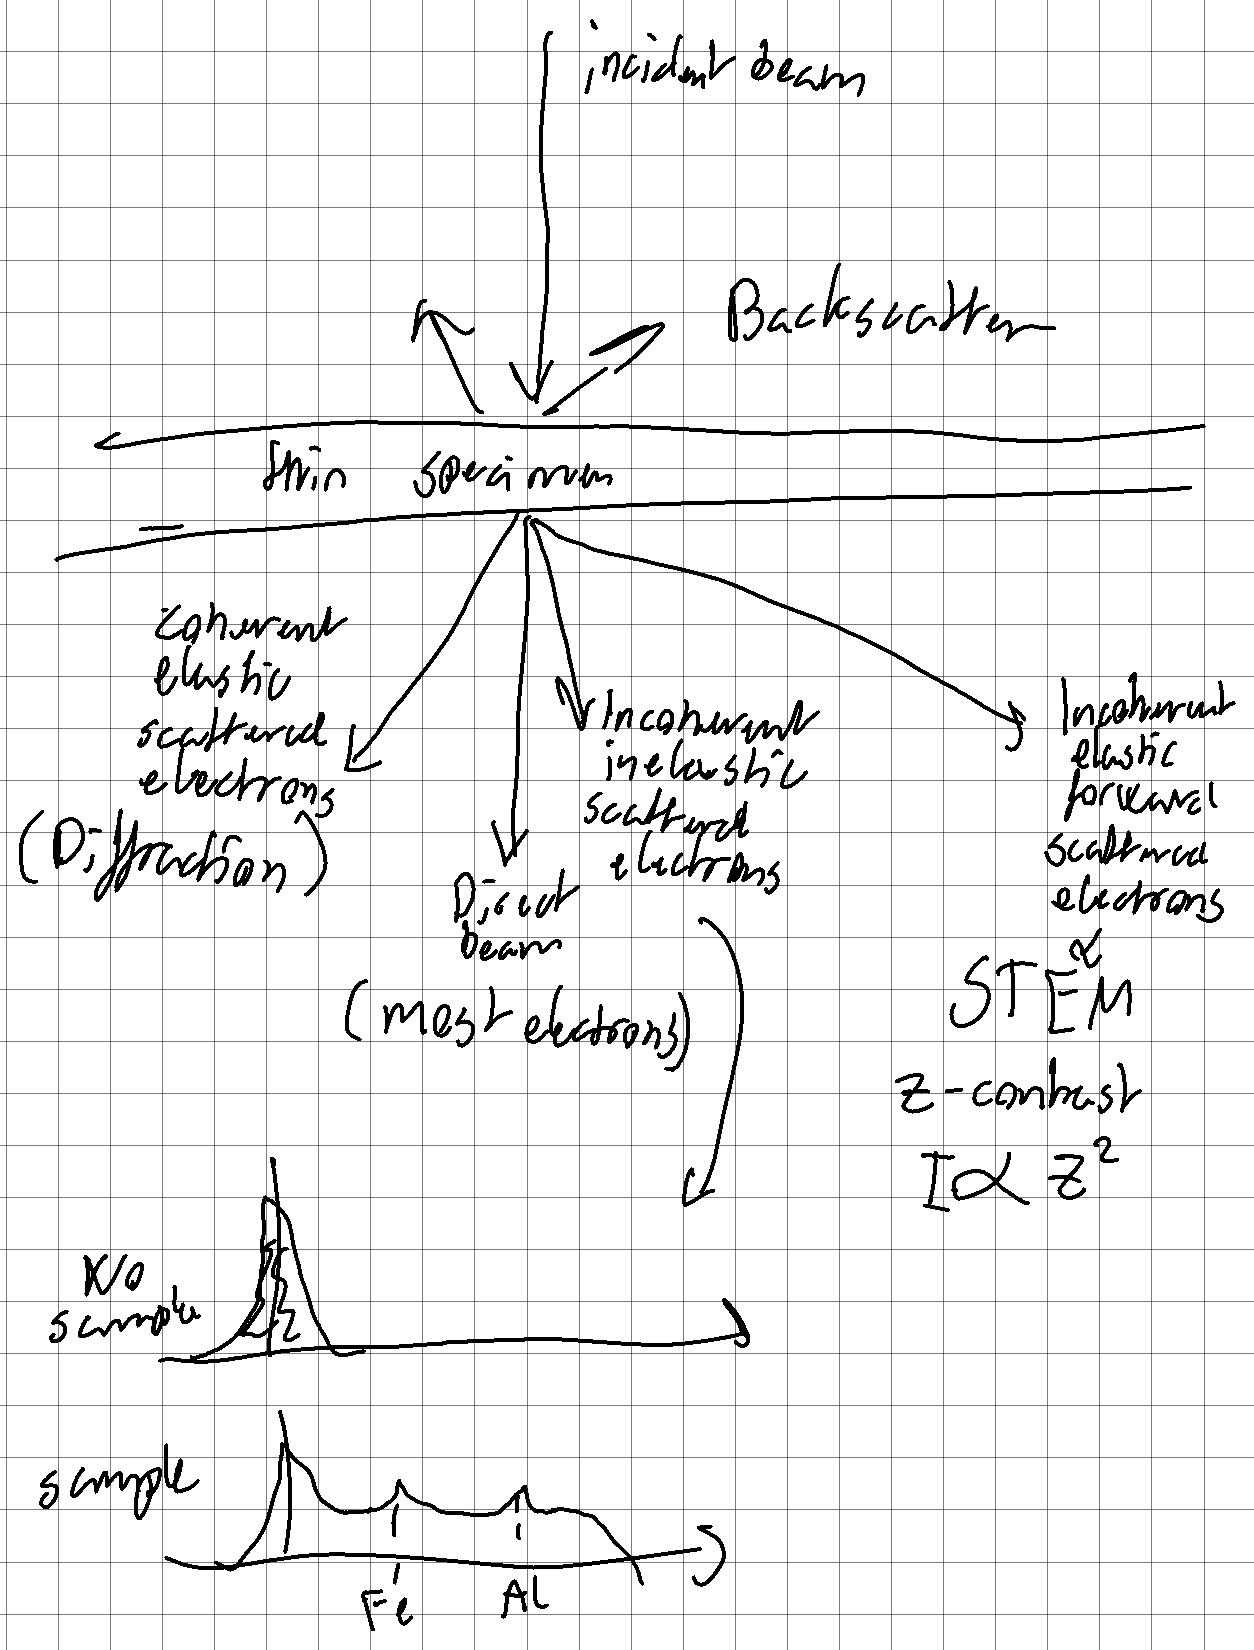 incident beam
Backscatter
thin specimen
coherent
elastic
scattered
electrons
(Diffraction)
Direct
beam
(most electrons)
Incoherent
inelastic
scattered
electrons
Incoherent
elastic
forward
scattered
electrons
STEM
Z-contrast
I ∝ Z²
sample
sample
Fe
Al